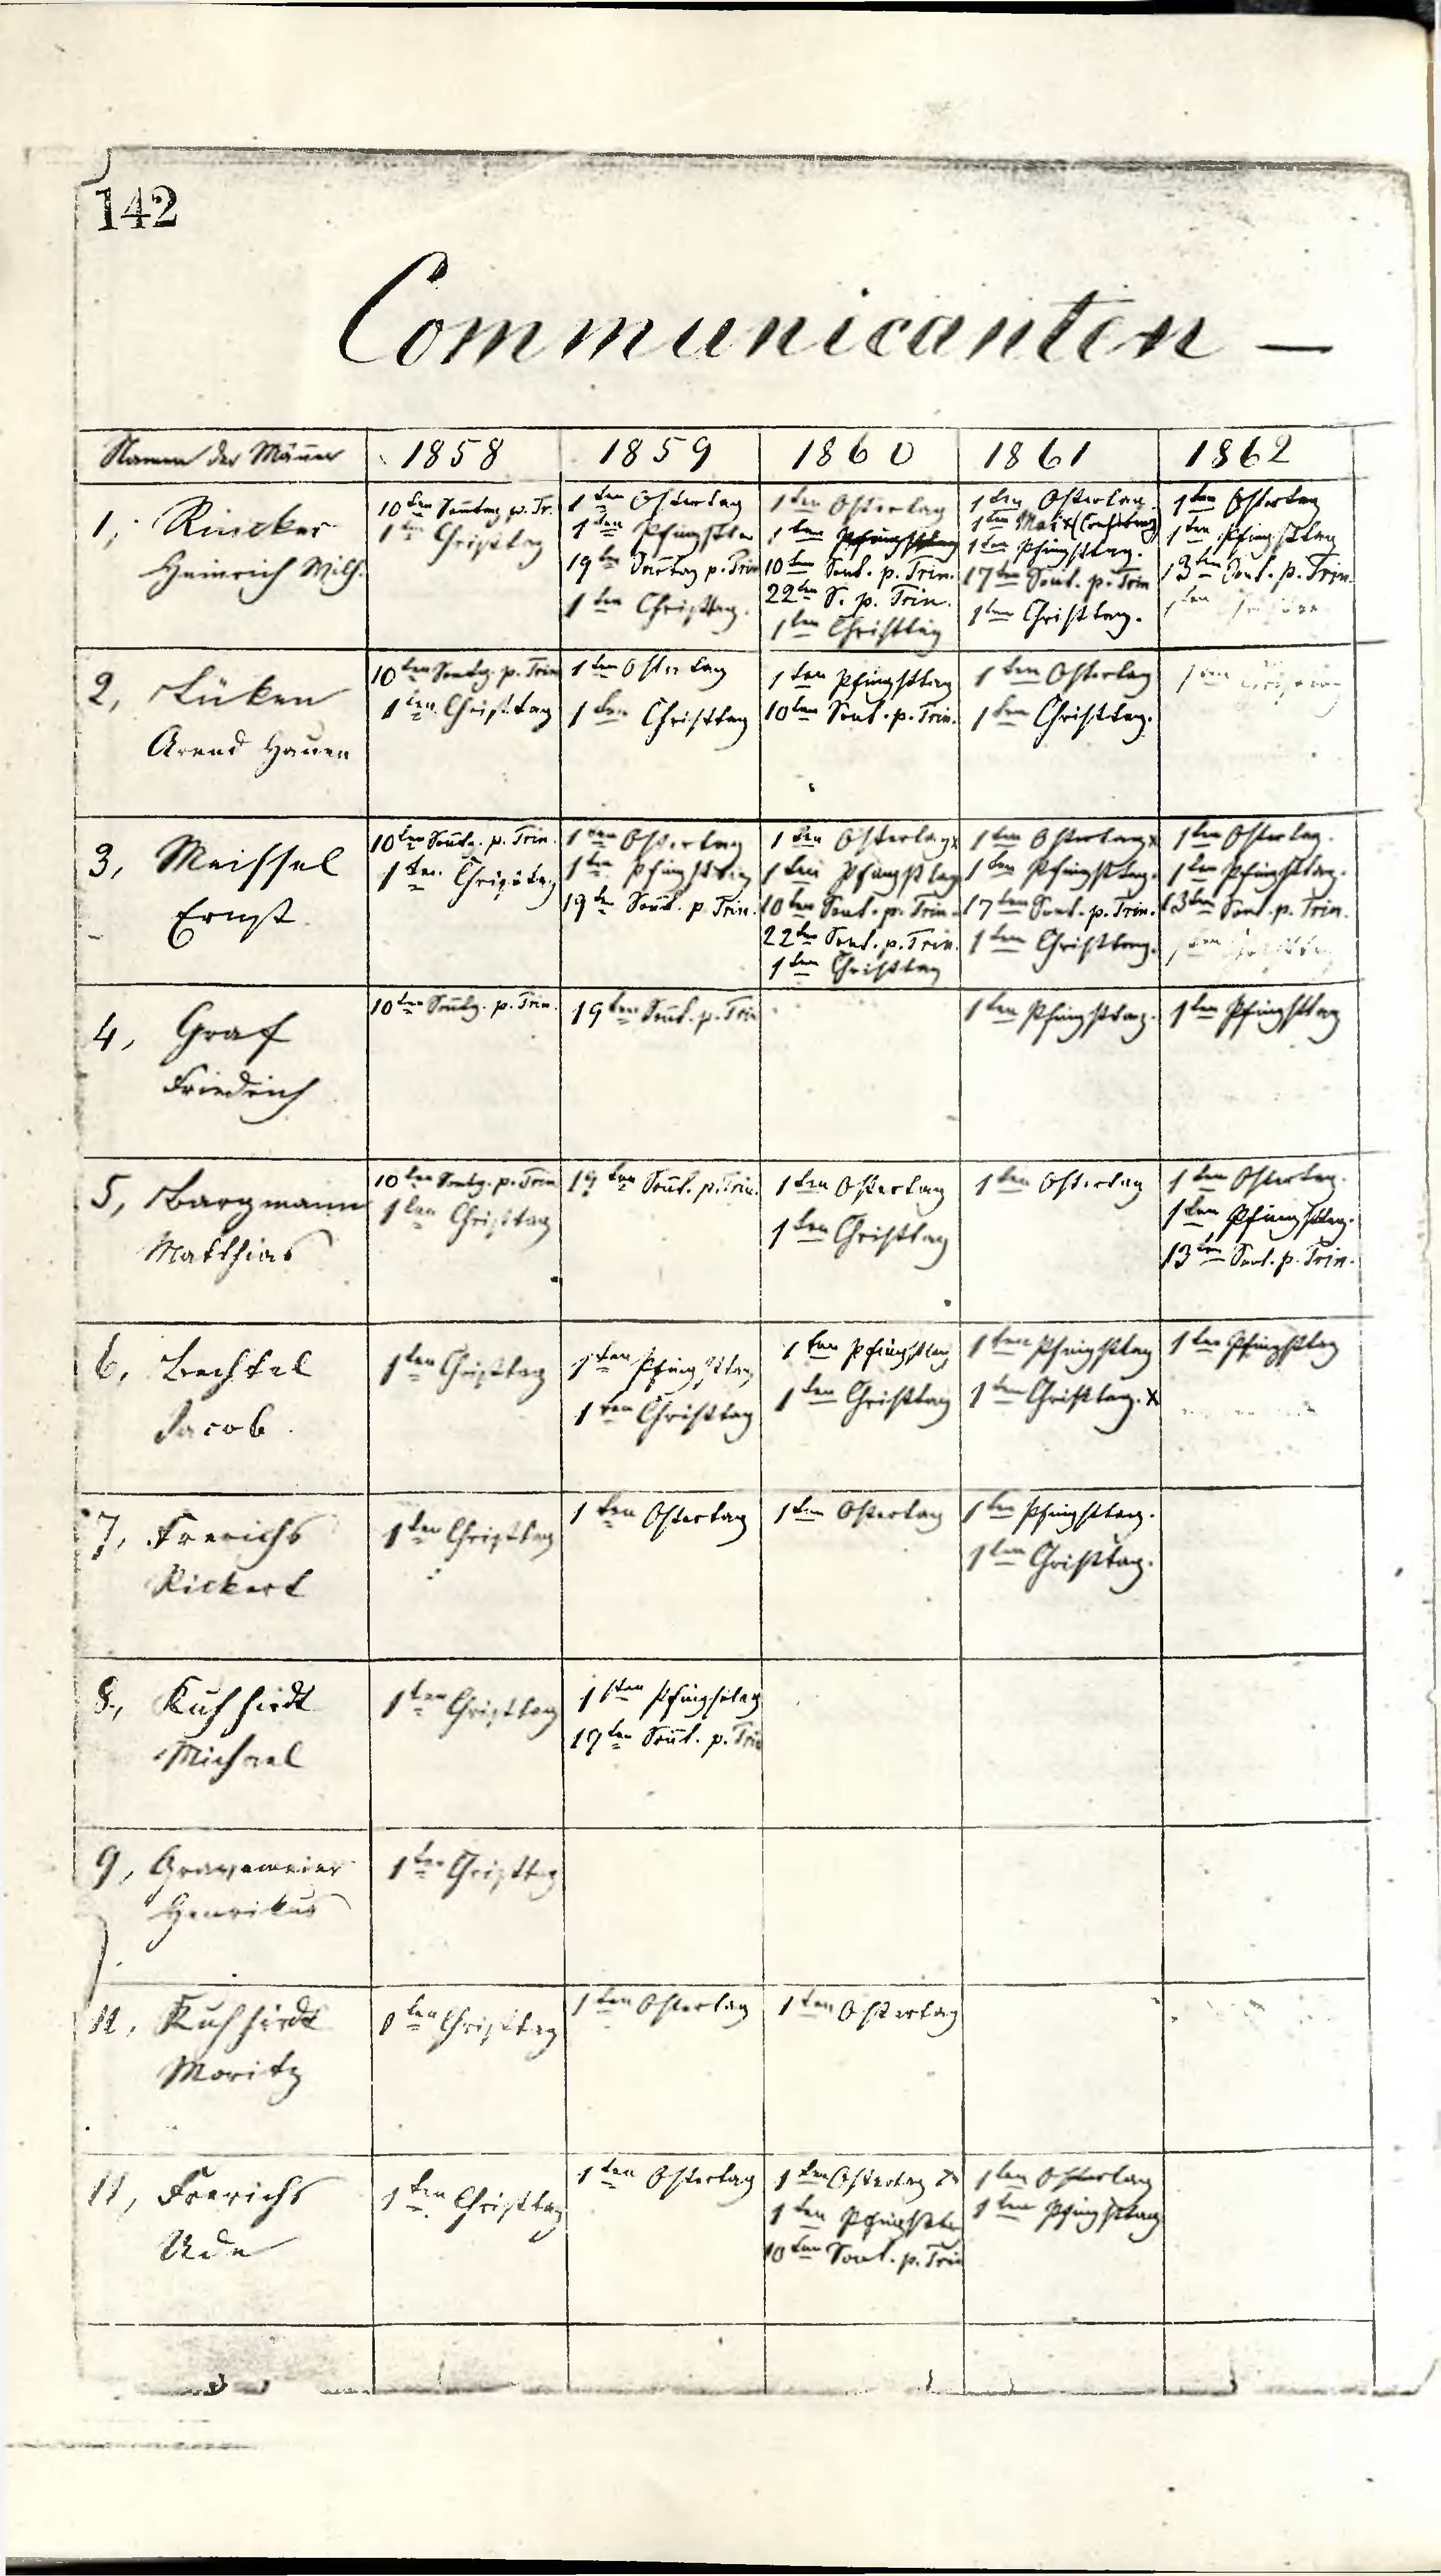 142
Communicanten —
Namen der Männer 1858 1859 1860 1861 1862
1, Rincker
Heinrich Wilh.
10ten Sonntag p. Tr.
1ten Christtag
1ten Ostertag
1ten Pfingsttag
19ten Sonntag p. Trin
1ten Christtag.
1ten Ostertag
1ten Pfingsttag
10ten Sont. p. Trin.
22ten S. p. Trin.
1ten Christtag
1ten Ostertag.
1ten Mai
1ten Pfingsttag.
17ten Sont. p. Trin
1ten Christtag.
1ten Ostertag
1ten Pfingsttag
13ten Sont. p. Trin.
1ten
2, Lüken
Arend Hauen
10ten Sontg. p. Trin
1ten Christtag
1ten Ostertag
1ten Christtag
1ten Pfingsttag
10ten Sont. p. Trin.
1ten Ostertag
1ten Christtag.
1ten Christtag
3, Meissel
Ernst
10ten Sontg. p. Trin.
1ten Christtag
1ten Ostertag
1ten Pfingsttag
19ten Sont. p. Trin.
1ten Ostertag x
1ten Pfingsttag
10ten Sont. p. Trin.
22ten Sont. p. Trin.
1ten Christtag
1ten Ostertag x
1ten Pfingsttag.
17ten Sont. p. Trin.
1ten Christtag.
1ten Ostertag.
1ten Pfingsttag.
13ten Sont. p. Trin.
1ten Christtag
4, Graf
Friedrich
10ten Sontg. p. Trin.
19ten Sont. p. Trin
1ten Pfingsttag.
1ten Pfingsttag
5, Bargmann
Matthias
10ten Sontg. p. Trin
1ten Christtag
19ten Sont. p. Trin.
1ten Ostertag
1ten Christtag
1ten Ostertag
1ten Ostertag.
1ten Pfingsttag.
13ten Sont. p. Trin.
6, Bechtel
Jacob.
1ten Christtag
1ten Pfingsttag
1ten Christtag
1ten Pfingsttag
1ten Christtag
1ten Pfingsttag
1ten Christtag. x
1ten Pfingsttag
7, Frerichs
Rickert
1ten Christtag
1ten Ostertag
1ten Ostertag
1ten Pfingsttag.
1ten Christtag.
8, Kuhhirdt
Michael
1ten Christtag
1ten Pfingsttag
19ten Sont. p. Trin
9, Gravemeier
Henrikus
1ten Christtag
11, Kuhhirdt
Moritz
1ten Christtag
1ten Ostertag
1ten Ostertag
11, Frerichs
Ude
1ten Christtag
1ten Ostertag
1ten Ostertag x
1ten Pfingstta
10ten Sont. p. Trin
1ten Ostertag
1ten Pfingsttag